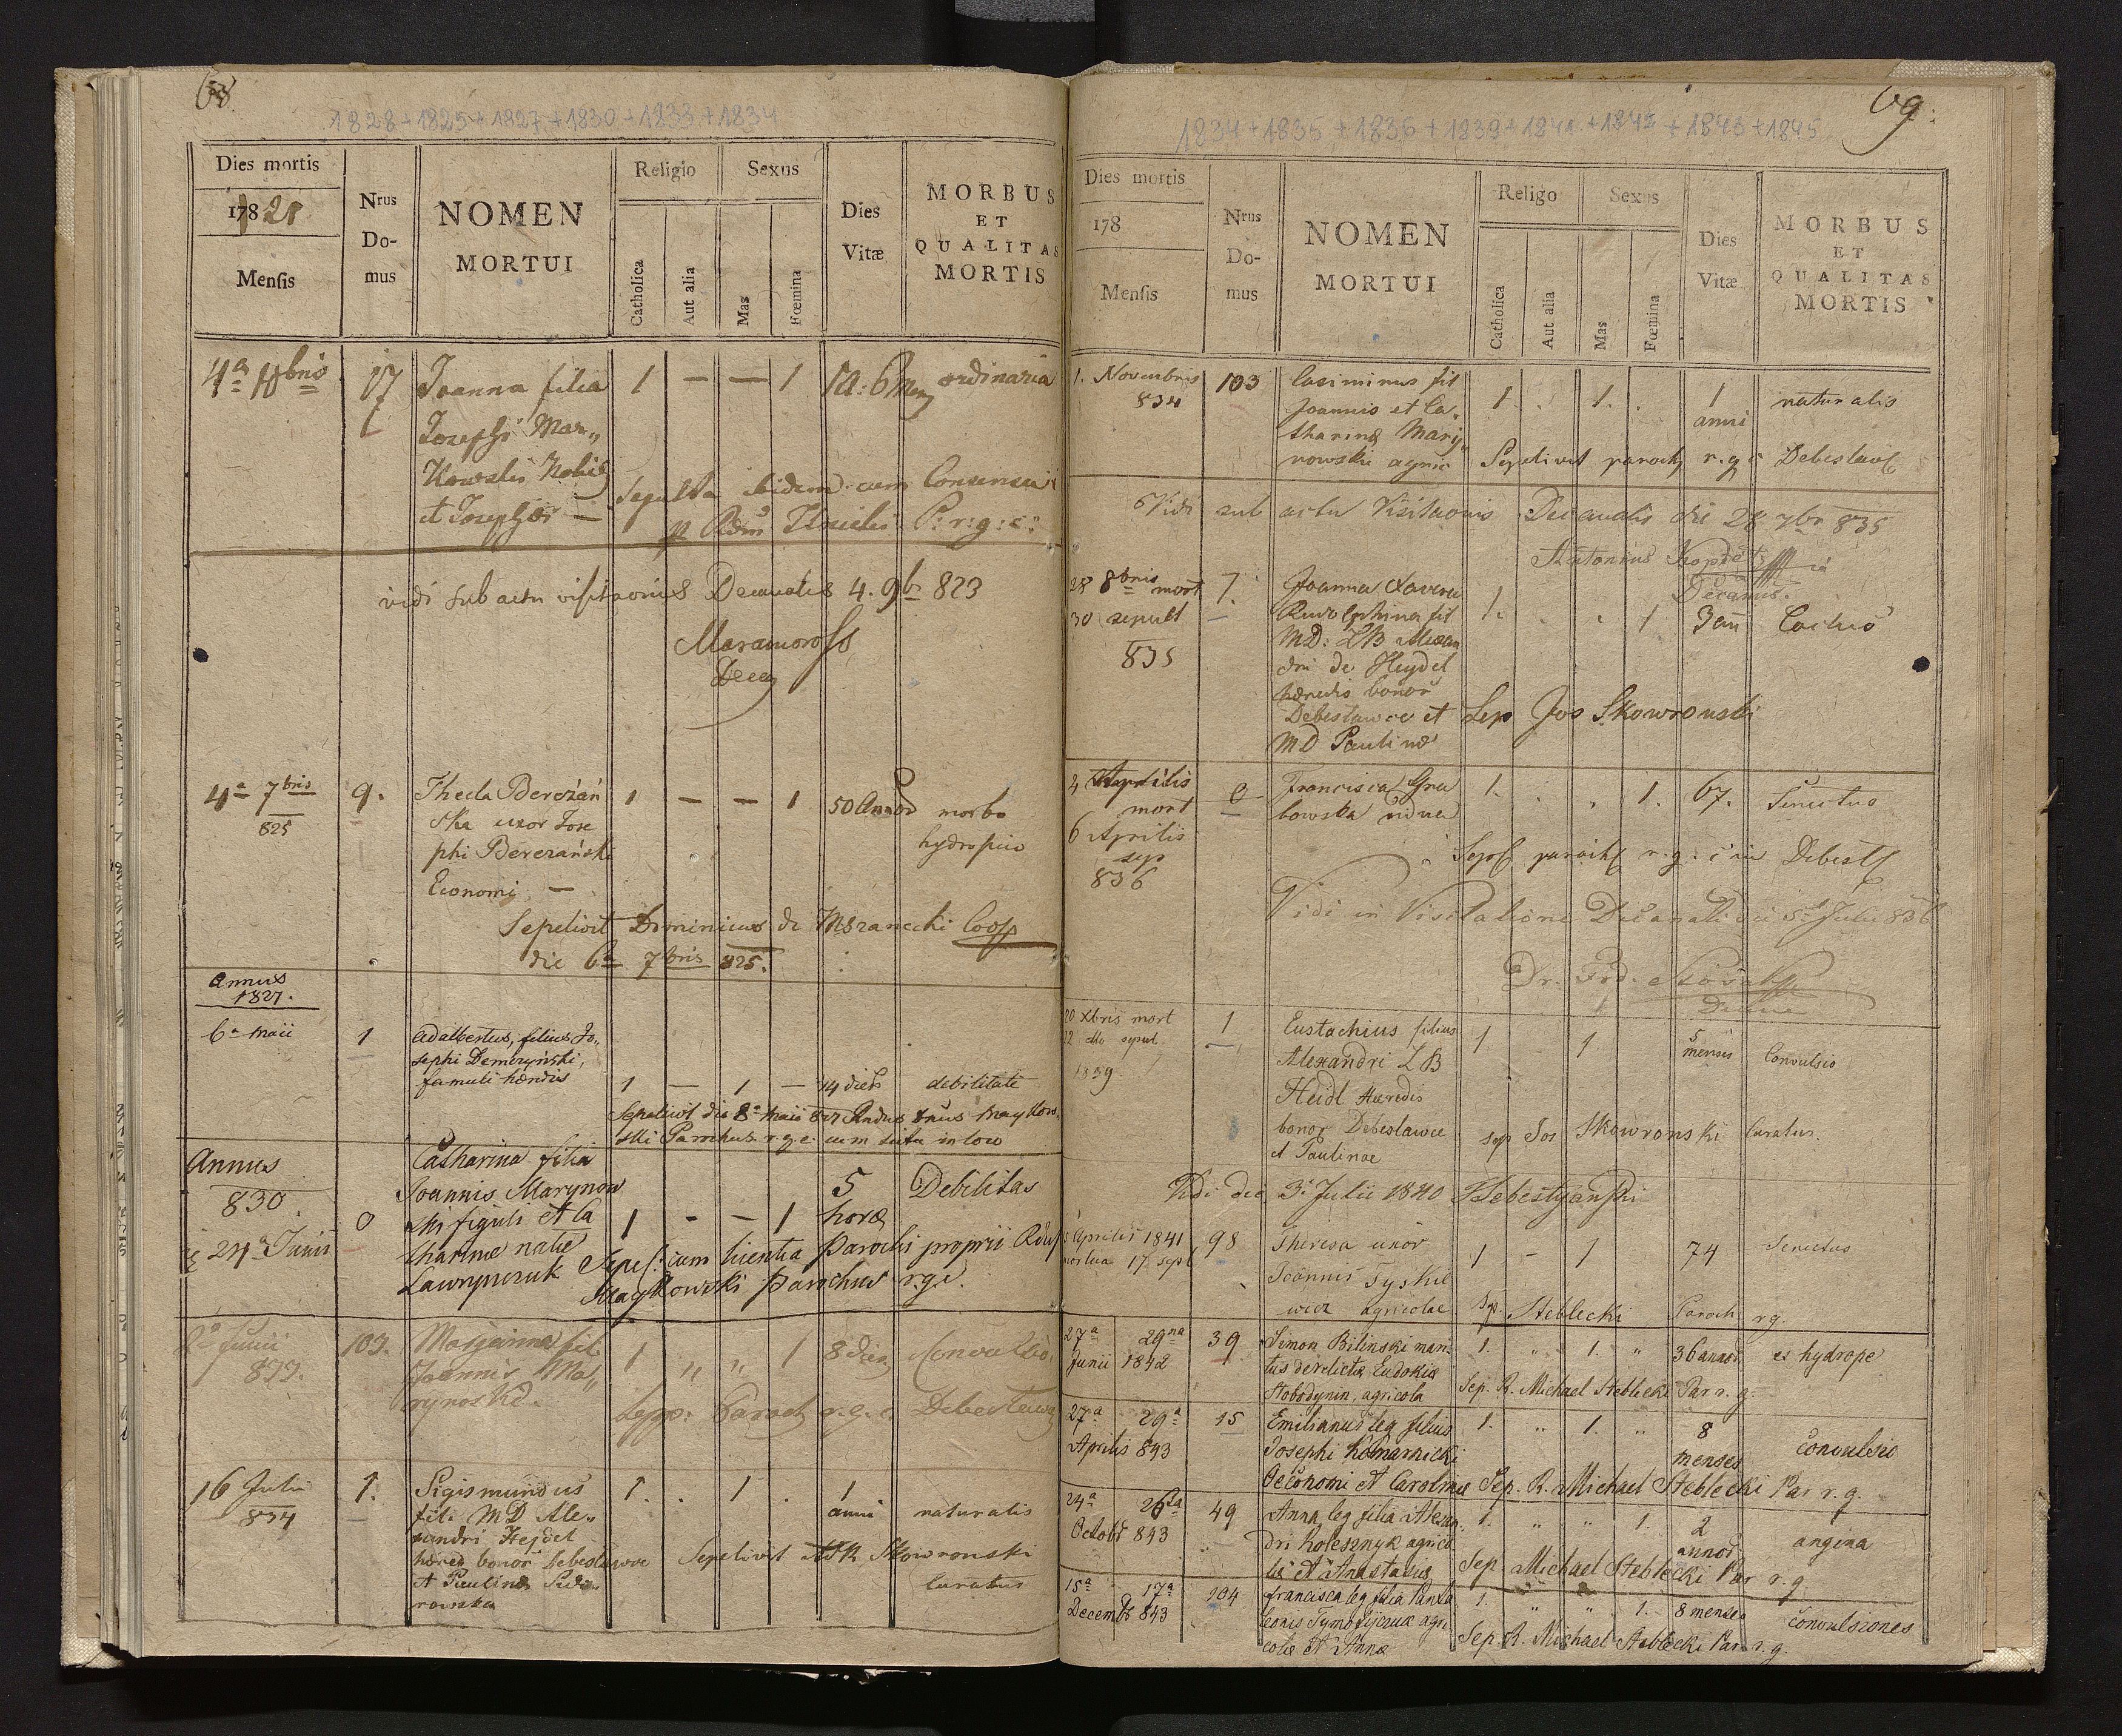 68.
1828+1825+1827+1830+1833+1834
Dies mortis
Nrus
Do-
mus
NOMEN
MORTUI
Religio
Sexus
Dies
Vitæ
MORBUS
ET
QUALITAS
MORTIS
1821
Mensis
Catholica
Aut alia
Mas
Fœmina
4ª 10bris
17
Joanna filia
1 — — 1
1 a: 6 men
ordinaria
Josephi Mar„
Kowski Nobis
et Josephæ —
Sepulta ibidem cum Consensu
P: r: g: c:
vidi sub actu visitaonis Decanalis 4. 9b 823
Maramoross
Dec
4ª 7bris
825
9.
Thecla Bereżań
ska uxor Jose
phi Bereżański
Economi —
1 — — 1
50 Annor
morbo
hydropico
Sepelivit Dominicus de Mszanecki Coop
die 6ª 7bris 825.
Annus
1827.
6ª Maii
1
Adalbertus, filius Jo„
sephi Demczyński,
famuli hændis
1 — 1 —
14 dieb
debilitate
Sepelivit die 8ª Maii 827 Andreas Maykow
ski Parochus r.g.c. cum
in loco
Annus
830
24ª Junii
0
Catharina filia
Joannis Marynow
ski figuli et Ca
tharinæ natæ
Ławryńczuk
1 - - 1
5
horæ
Debilitas
Sepel: cum licentia Parochi proprii
Maykowski Parochus r.g.c.
2ª Junii
833.
103.
Marjanna fil
Joannis Ma„
rynoski.
1 „ „ 1
8 dier
Convulsio
Sepp: Paroch r.g.c. Debeslawc
16 Julii
834
1.
Sigismundus
fil: MD Ale„
xandri Hejdel
hæred bonor Debeslawce
et Paulinæ
1. . 1 .
1
anni
naturalis
Sepelivit Skowronski
Curatus
69.
1834+1835+1836+1839+1841+1842+1843+1845
Dies mortis
178
Mensis
Nrus
Do-
mus
NOMEN
MORTUI
Religio
Sexus
Catholica
Aut alia
Mas
Fœmina
Dies
Vitæ
MORBUS
ET
QUALITAS
MORTIS
1. Novembris
834
103
Casimirus fil
Joannis et Ca„
tharinæ Mary„
nowski agric
1. . 1. .
1
anni
naturalis
Sepelivit paroch r.g.c Debeslavc
Vidi sub actu Visitaonis Decanalis die 28 7br 835
Antonius
Decanus.
28 8bris mort
30 sepult
835
7.
Joanna Xavera
Rudolphina fil
MD: LB Alexan
dri de Heydel
hæredis bonor
Debeslawce et
MD Paulinæ
1. . . 1
3 an
Sep Jos Skowronski
4 Aprilis
mort
6 Aprilis
sep
836
0
Francisca Gra
bowska vidua
1. . . 1.
67.
Senectus
Sep paroch r.g.c in Debesl
Vidi in Visitatione Decanali die 5ª Julii 836
20 Xbris mort
22 dto sepul.
1839
1
Eustachius filius
Alexandri LB
Heidl Hæredis
bonor Debeslawce
et Paulinae
1 1
5
mensis
Convulsio
sep Jos Skowronski Curatus.
Vidi die 3ª Julii 1840
Aprilis 1841
mortua 17 sept
98
Theresa uxor
Joannis Tyszkie
wicz agricolae
1 - 1
74
Senectus
Sep. Steblecki Paroch rg.
27ª 29na
Junii 1842
39
Simon Bilinski mari
tus derelictæ Eudokiæ
Słobodynin, agricola
1. „ 1. „
36 annor
ex hydrope
Sep. R. Michael Steblecki Par r. g.
27ª 29ª
Aprilis 843
15
Emilianus leg filius
Josephi Komarnicki
Oeconomi et Carolinæ
1. „ 1. „
8
menses
Convulsio
Sep. R. Michael Steblecki Par r. g.
24ª 26ta
Octobr 843
49
Anna leg filia Alexan
dri Kolesznyk agrico
læ et Anastasiæ
1. „ „ 1.
2
annor
angina
Sep Michael Steblecki Par r. g
15ª 17ª
Decembr 843
104
Francisca leg filia Panta
leonis Tymofijczuk agri
colæ et Annæ
1. „ „ 1.
8 menses
Convulsiones
Sep. R. Michael Steblecki Par. r. g.